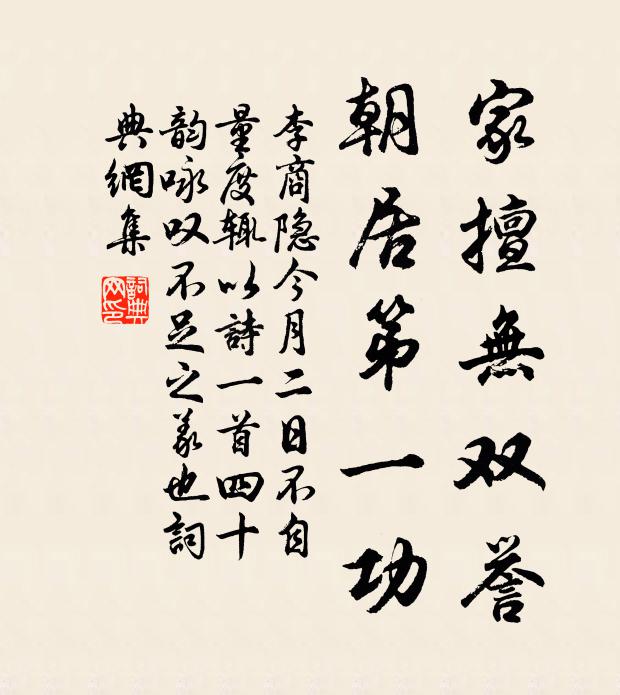 家擅無双誉
朝居第一功
李商隐今月二日不自
量度辄以詩一首四十
韵咏叹不足之义也詞
典網集
詞典
网印